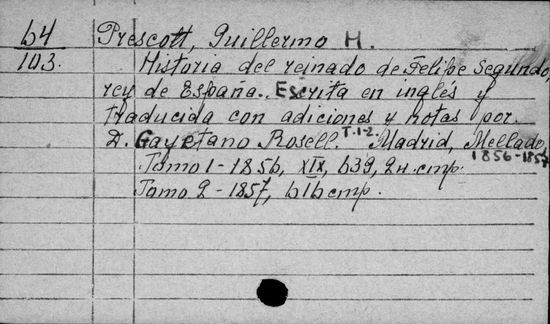 64 Prescott, Guillermo H.
103. Historia del reinado de Felipe Segundo,
rey de España. Escrita en inglés y
traducida con adiciones y notas por
D. Cayetano Rosell. T.1-2. Madrid, Mellado,
1856-1857
Tomo 1-1856, XIX, 639, 24 cmp.
Tomo 2-1857, 616 cmp.